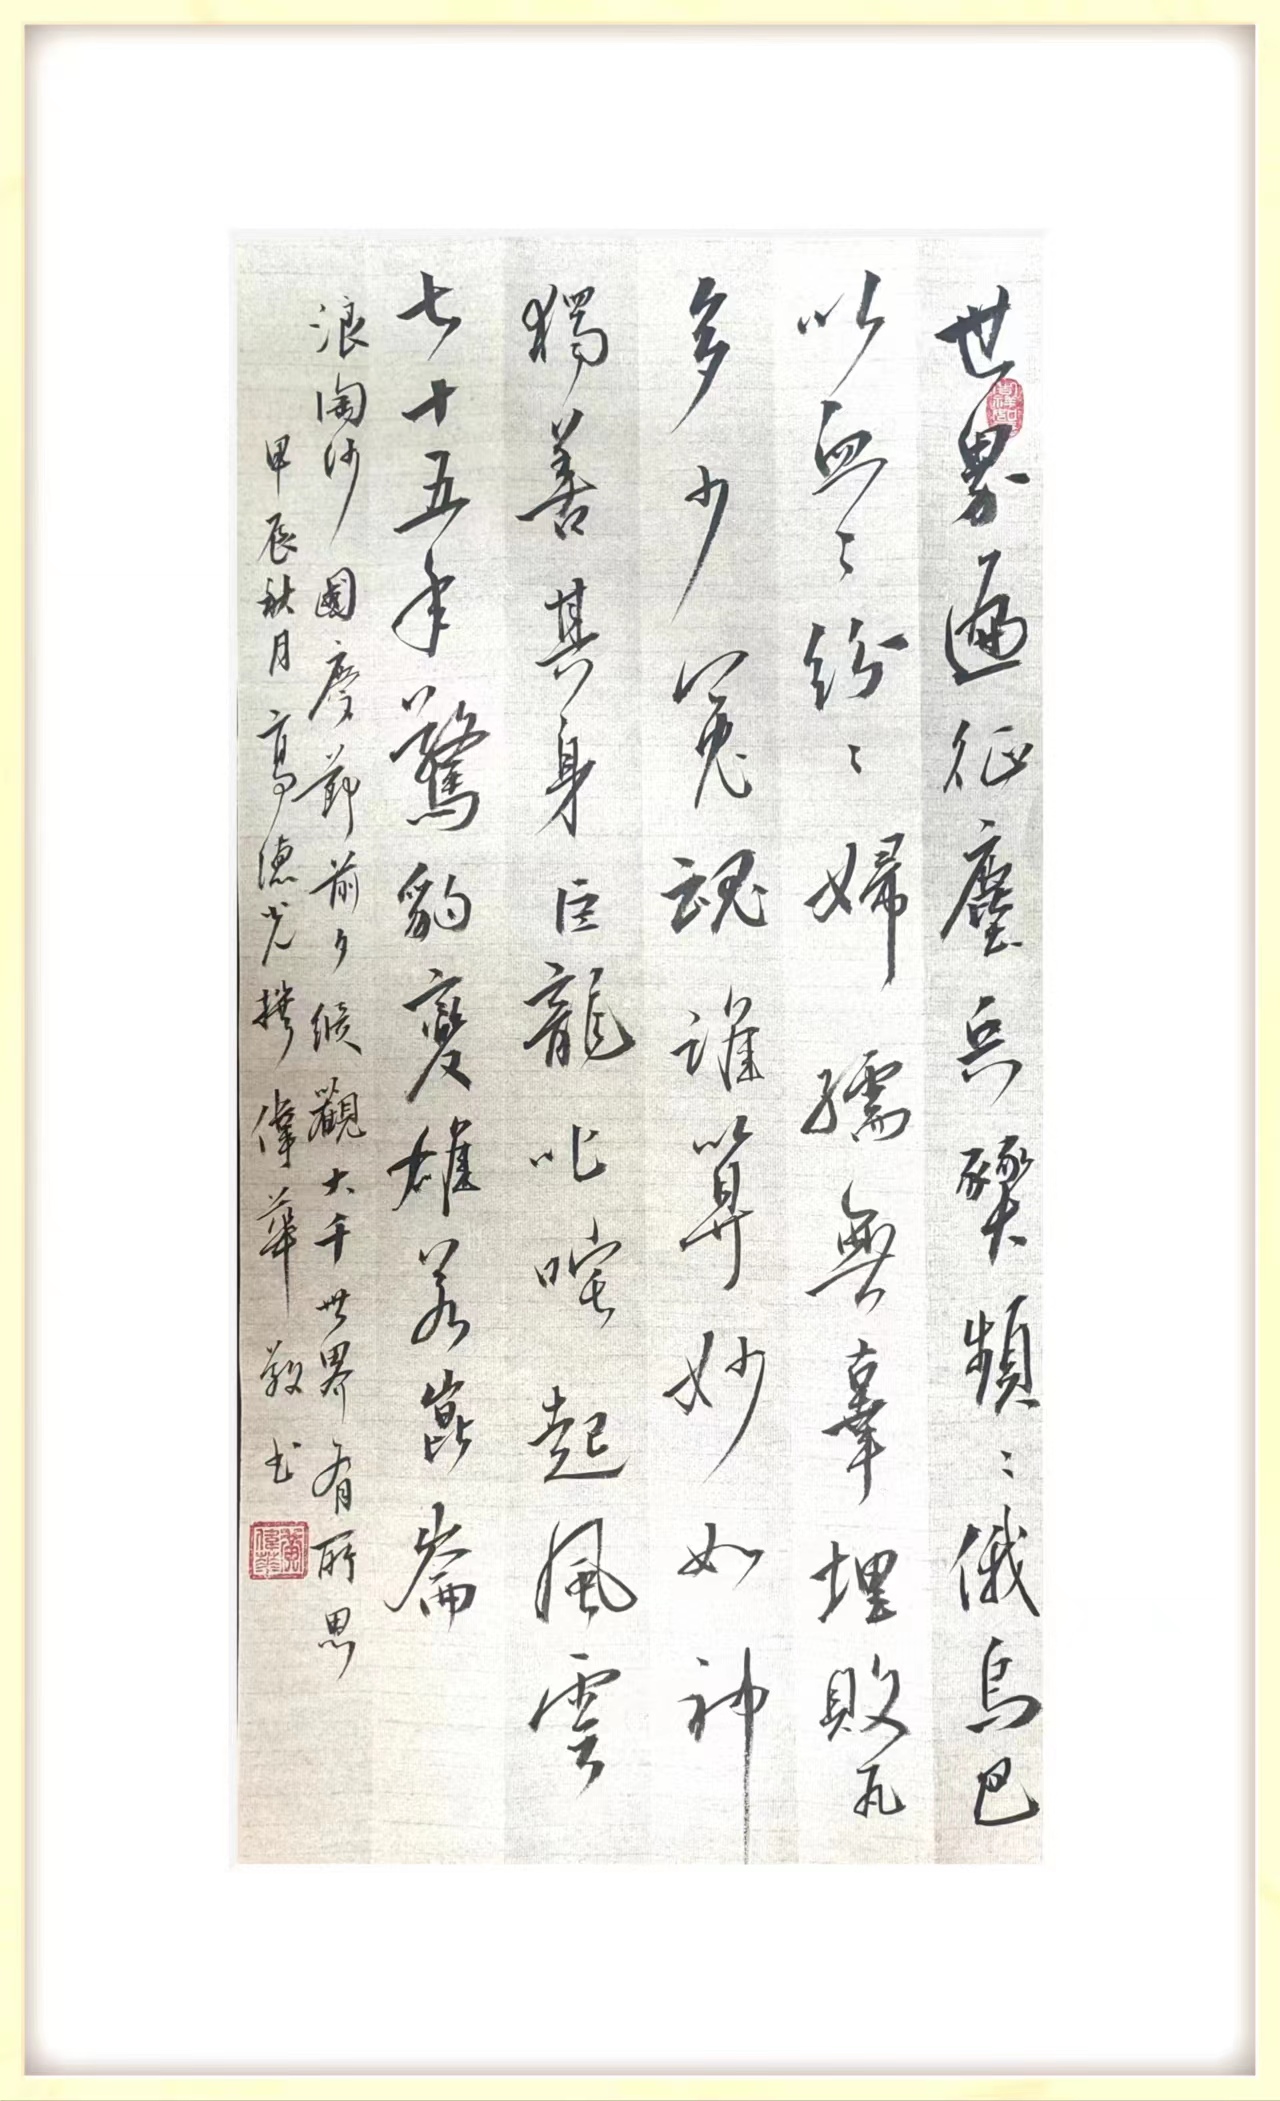 世界遍征塵兵燹頻〻俄烏巴
以血〻紛〻婦孺無辜埋敗瓦
多少冤魂誰算妙如神
獨善其身巨龍叱咤起風雲
七十五年驚豹變雄若崑崙
浪淘沙國慶節前夕縱觀大千世界有所思
甲辰秋月高德光撰偉華敬书
黄偉華